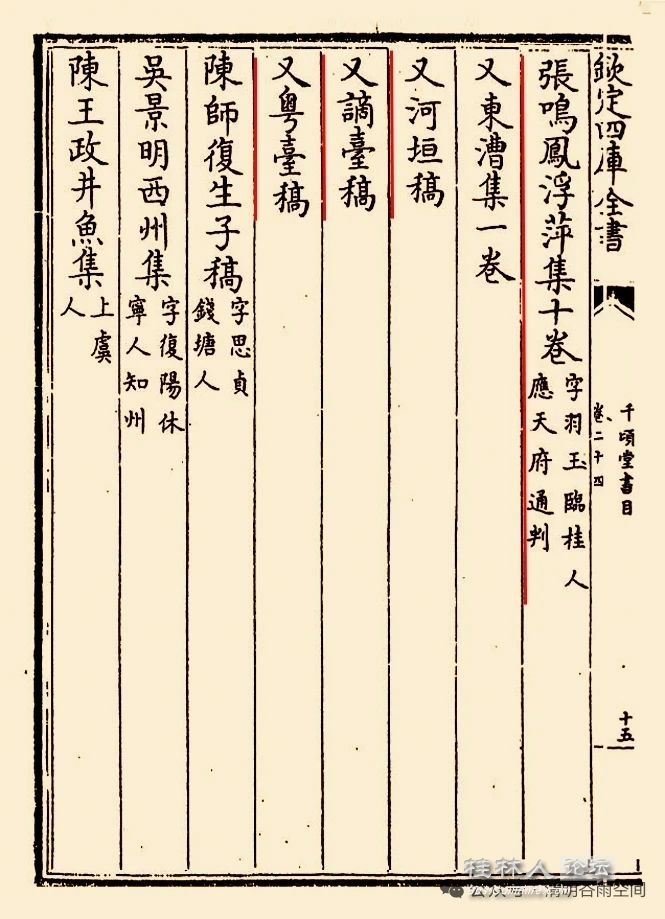 欽定四庫全書
千頃堂書目
卷二十四
十五
張鳴鳳浮萍集十卷
字羽王臨桂人
應天府通判
又東漕集一卷
又河垣稿
又謫臺稿
又粤臺稿
陳師復生子稿
字思貞
錢塘人
吳景明西州集
字復陽休
寧人知州
陳王政井魚集
上虞
人
桂林人 论坛
公众号·清明谷雨空间